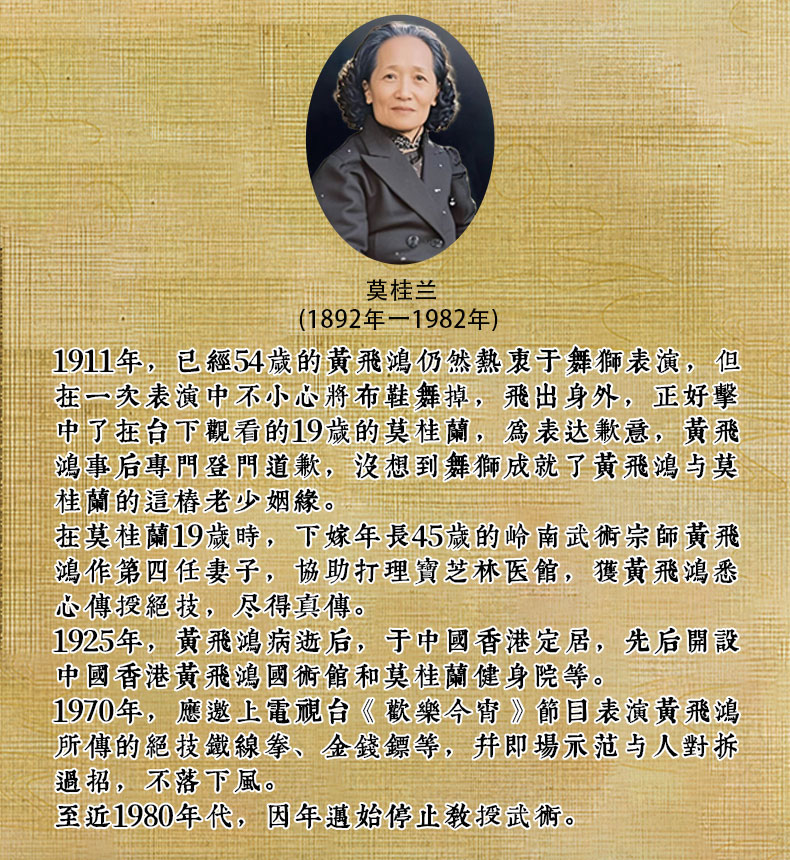 莫桂兰
(1892年一1982年)
1911年，已經54歲的黃飛鴻仍然熱衷于舞獅表演，但
在一次表演中不小心將布鞋舞掉，飛出身外，正好擊
中了在台下觀看的19歲的莫桂蘭，爲表达歉意，黃飛
鴻事后專門登門道歉，沒想到舞獅成就了黃飛鴻与莫
桂蘭的這樁老少姻緣。
在莫桂蘭19歲時，下嫁年長45歲的岭南武術宗師黃飛
鴻作第四任妻子，協助打理寶芝林医館，獲黃飛鴻悉
心傳授絕技，尽得真傳。
1925年，黃飛鴻病逝后，于中國香港定居，先后開設
中國香港黃飛鴻國術館和莫桂蘭健身院等。
1970年，應邀上電視台《歡樂今宵》節目表演黃飛鴻
所傳的絕技鐵線拳、金錢鏢等，幷即場示范与人對拆
過招，不落下風。
至近1980年代，因年邁始停止敎授武術。